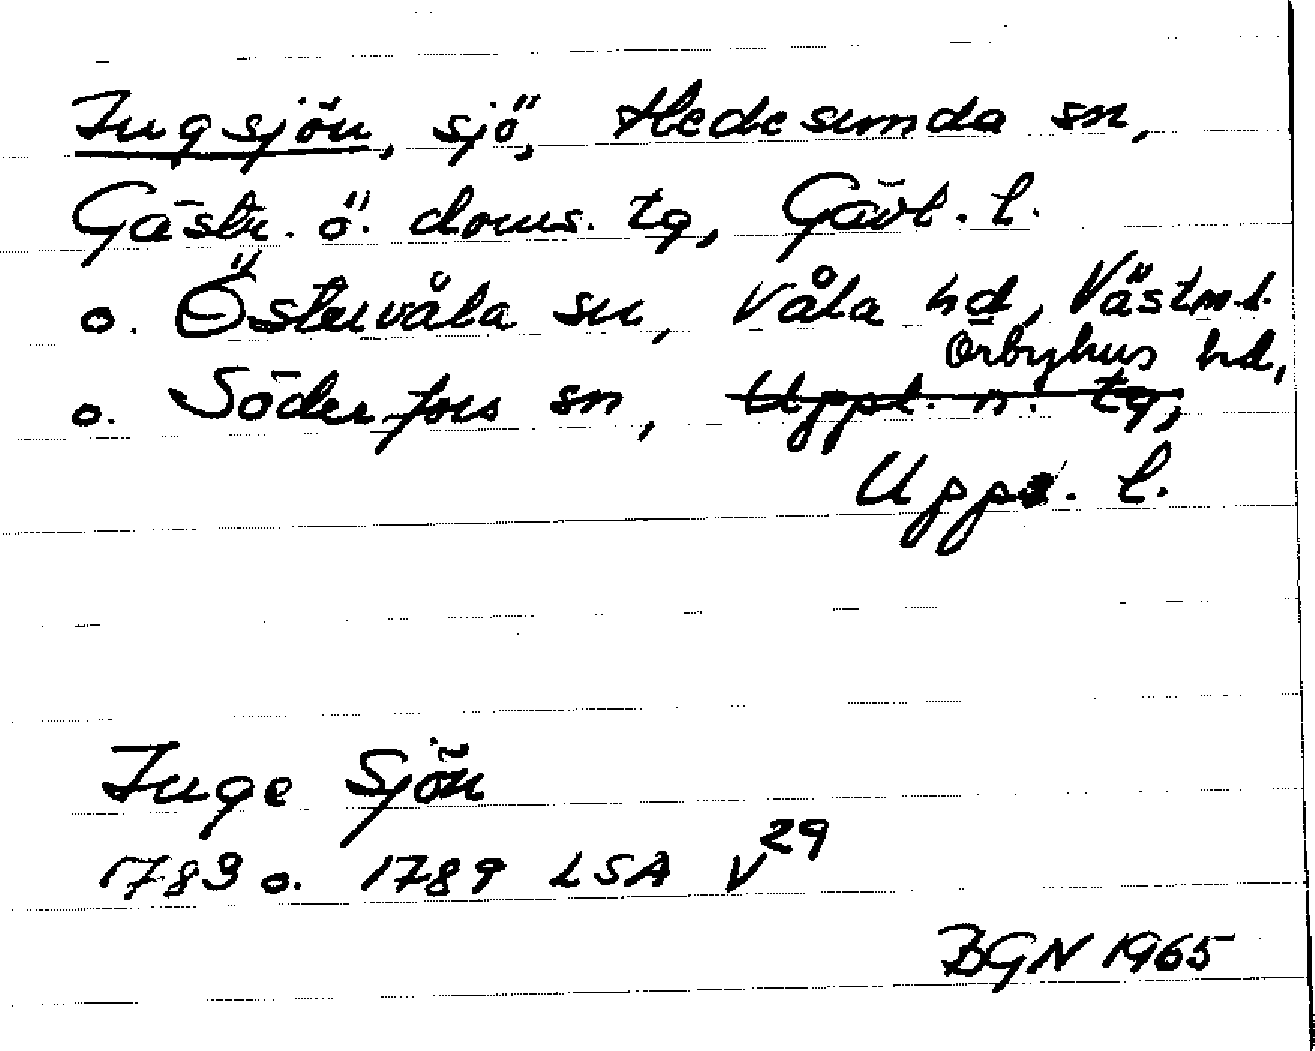 Ingsjön, sjö, Hedesunda sn,
Gästr. ö. doms. tg, Gävl. l.
o. Östervåla sn, Våla hd, Västml.
Örbyhus hd,
o. Söderfors sn, Uppl. n. tg,
Upps. l.
Inge Sjön
1783 o. 1789 LSA V29
BGN 1965